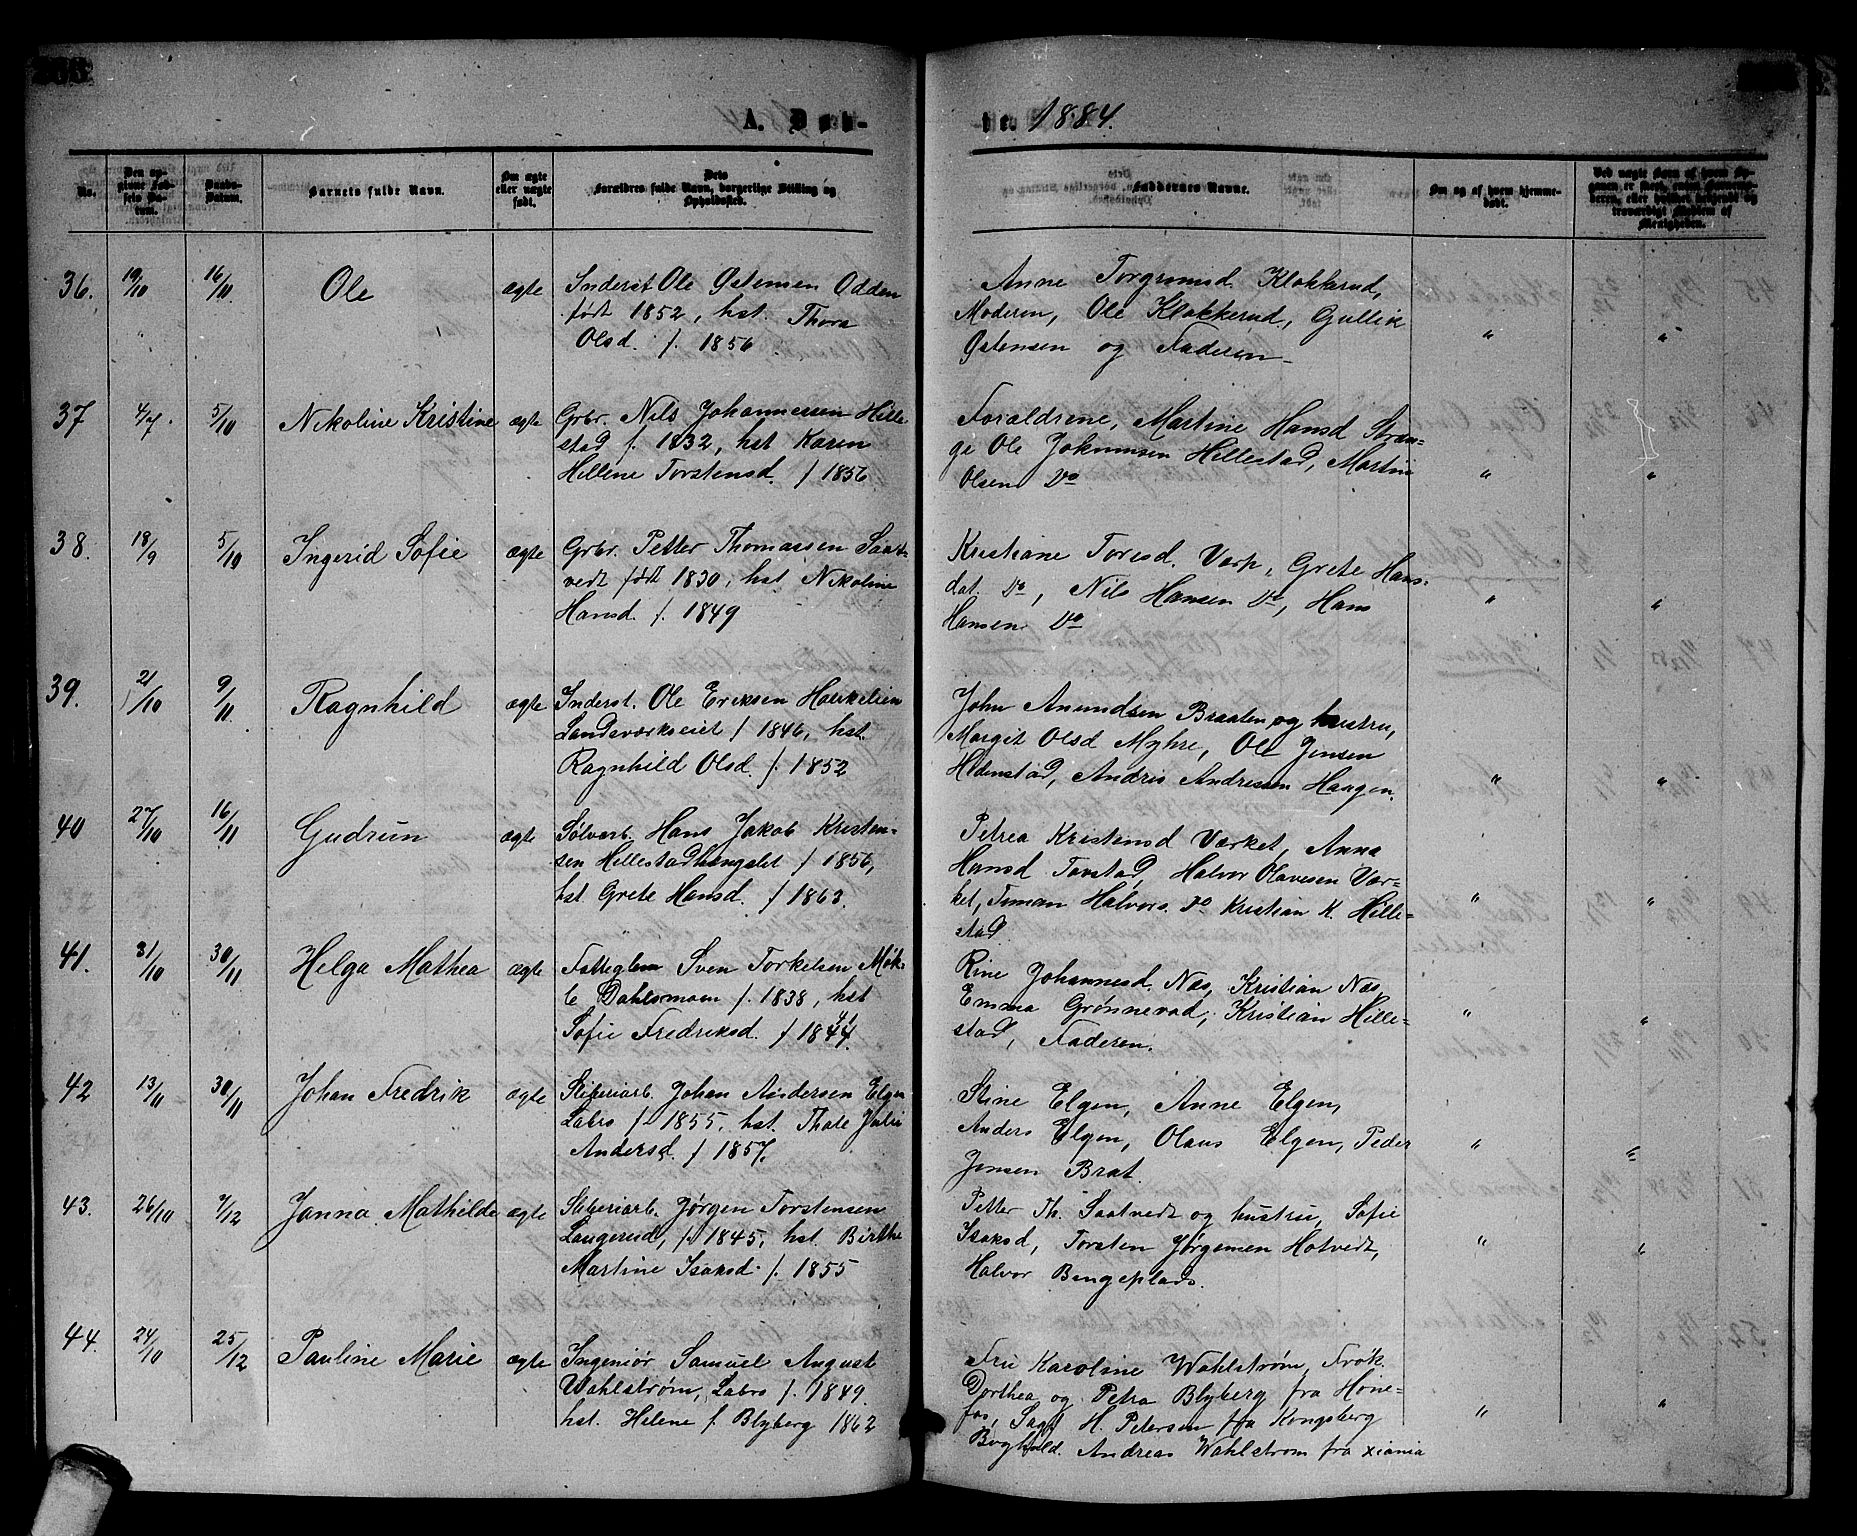 A. Døb-
te. 1884.
No.
Den opgivne Fødsels Datum.
Daabs-Datum.
Barnets fulde Navn.
Om ægte eller uægte født.
Dets Forældres fulde Navn, borgerlige Stilling og Opholdssted.
Faddernes Navne.
Om og af hvem hjemmedøbt.
36. 19/10 16/11 Ole ægte
Inderst Ole Østensen Odden
født 1852, hst. Thora
Olsd. f. 1856.
Anne Torgrimsd. Klokkerud,
Moderen, Ole Klokkerud, Gullik
Østensen og Faderen
" "
37 4/7. 5/10 Nikoline Kristine ægte
Grbr. Nils Johannessen Hille-
stad f. 1832, hst Karen
Hellene Torstensd. f 1856
Forældrene, Martine Hansd Stræn-
ge Ole Johannsen Hillestad, Martin
Olsen Do
" "
38. 18/9 5/10 Ingerid Sofie ægte
Grbr. Petter Thomassen Saat-
vedt født 1830, hst. Nikoline
Hansd. f. 1849
Kristiane Toresd. Varp, Grete Hans-
dat. Do, Nils Hansen Do, Hans
Hansen Do
" "
39. 21/10 9/11 Ragnhild ægte
Inderst. Ole Eriksen Haukelien
Landsværkseiet f 1846, hst.
Ragnhild Olsd. f. 1852
John Amundsen Braaten og hustru,
Margit Olsd Myhre, Ole Jensen
Hedenstad, Andris Andresen Haagen.
" "
40 27/10 16/11 Gudrun ægte
Sølvarb. Hans Jakob Kristen-
sen Hillestadhengslet f 1856,
hst Grete Hansd. f 1863.
Petrea Kristensd Værket, Anna
Hansd Torstad, Halvor Olavesen Vær-
ket, Tieman Halvors. Do Kristian K. Hille-
stad
" "
41. 31/10 30/11 Helga Mathea ægte
Fattiglem Sven Torkelsen Møk-
le Dahlsmoen f. 1838, hst
Sofie Fredriksd. f 1844.
Rine Johannesd. Næs, Kristian Næs,
Emma Grønnevod, Kristian Hille-
stad, Faderen.
" "
42 13/11 30/11 Johan Fredrik ægte
Sliberiarb. Johan Andersen Elgen
Labro f. 1855, hst. Thale Julie
Andersd. f 1857.
Stine Elgen, Anne Elgen,
Anders Elgen, Olaus Elgen, Peder
Jensen Brat.
" "
43. 26/10 7/12 Janna Mathilde ægte
Sliberiarb. Jørgen Torstensen
Langerud, f. 1845, hst. Birthe
Martine Isaksd. f. 1855
Petter Th. Saatvedt og hustru, Sofie
Isaksd, Torsten Jørgensen Hotvedt,
Halvor Bingeplads.
" "
44. 24/10 25/12 Pauline Marie ægte
Ingeniør Samuel August
Wahlstrøm, Labro f. 1849.
hst. Helene f Blyberg 1862
Fru Karoline Wahlstrøm, Frøk.
Dorthea og Petra Blyberg fra Høne-
fos, Sagf H. Petersen fra Kongsberg
Boghold. Andreas Wahlstrøm fra xiania
" "